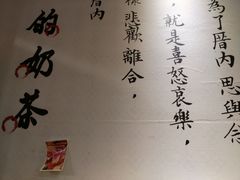 為了厝內 思與念
，就是喜怒哀樂，
悲歡離合，
厝內
的奶茶